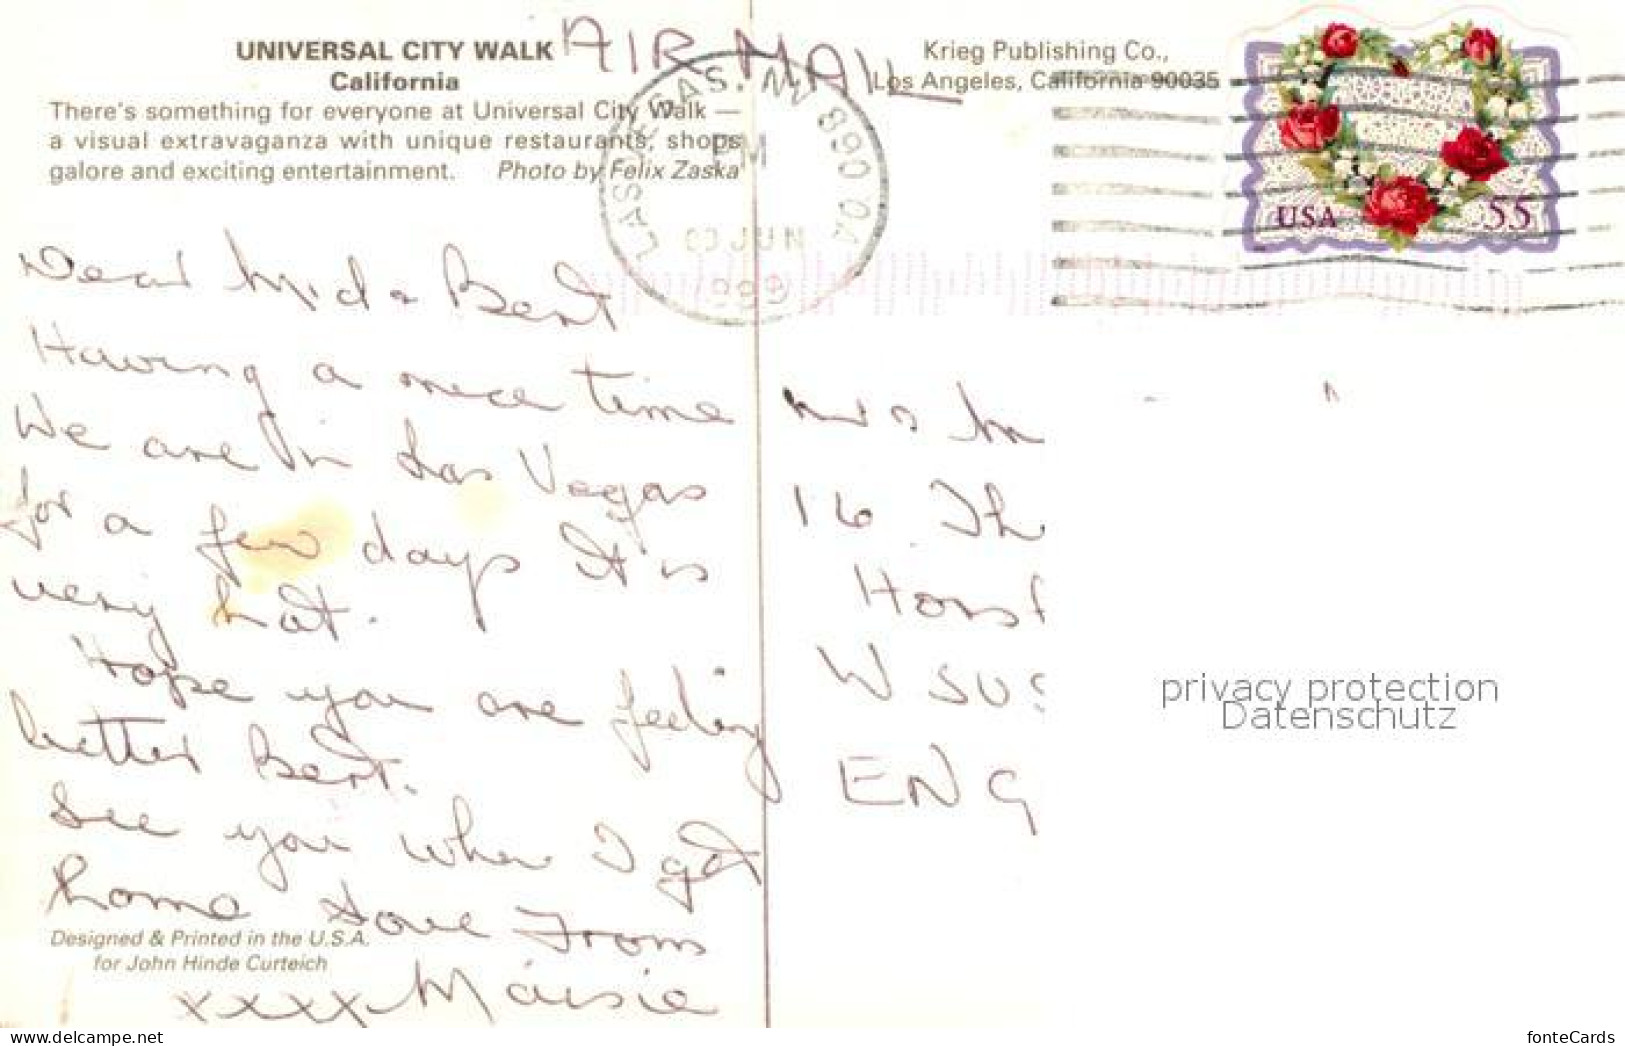 UNIVERSAL CITY WALK
California
There's something for everyone at Universal City Walk —
a visual extravaganza with unique restaurants, shops
galore and exciting entertainment. Photo by Felix Zaska
AIR MAIL
Krieg Publishing Co.,
Los Angeles, California 90035
LAS VEGAS, NV 890
PM
JUN
1999
USA 55
Dear & Bert
Having a nice time
We are in Las Vegas
for a few days It is
very hot.
Hope you are feeling
better Bert.
See you when I get
home Love From
xxxx Maisie
16 Th
Hors
W SUS
ENG
privacy protection
Datenschutz
Designed & Printed in the U.S.A.
for John Hinde Curteich
www.ansichtskartenversand.com
fonteCards